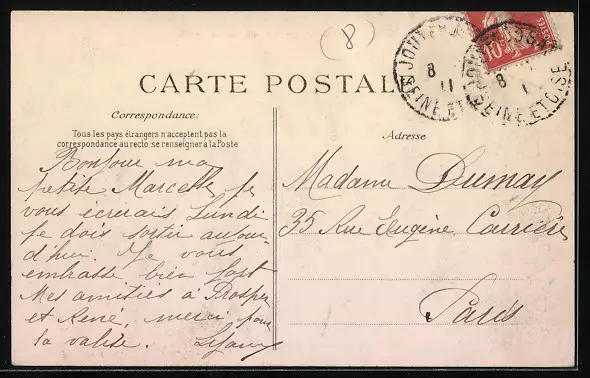 (8)
10
JOUY EN JOSAS
8
11
SEINE ET OISE
JOUY EN JOSAS
8
SEINE ET OISE
CARTE POSTALE
Correspondance:
Tous les pays étrangers n'acceptent pas la
correspondance au recto, se renseigner à la Poste
Adresse
Bonjour ma
petite Marcelle je
vous écrirais Lundi
je dois sortir aujour-
d'hui. Je vous
embrasse bien fort
Mes amitiés à Prosper
et René, merci pour
la valise.
Madame Dumay
35 Rue Eugène Carrière
Paris